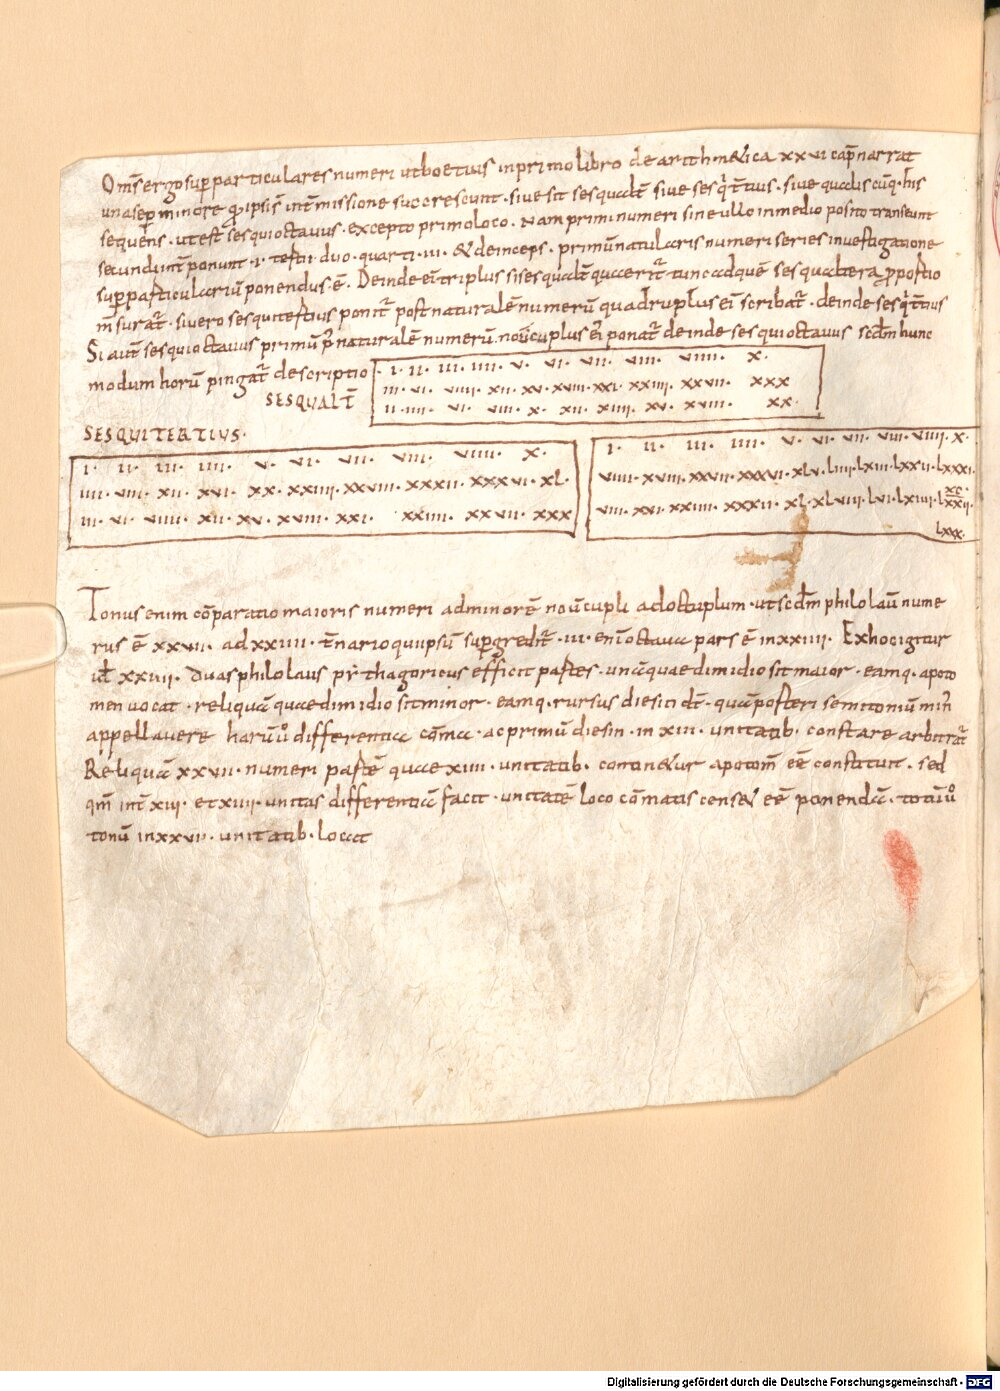 Om̄s ergo sup̄particulares numeri ut boetius in primo libro de arithm&ica xxvi cap̄ narrat
una sep̄ minore ꝓ ipsis int̄missione succrescunt. sive sit sesqualt̄ sive sesq̄t̄ius. sive qualiscūq. his
sequens. ut est sesquioctavus. excepto primo loco. Nam primi numeri sine ullo in medio posito transeunt
secundi int̄ponunt .i. testii duo. quarti .iii. & deinceps. primū naturalis numeri series investigatione
sup̄pasticulariū ponendus ē. Deinde ei triplus si sesqualt̄ quaerit̄ tunc adquē sesqualtera ꝓpostio
m̄surat̄. si vero sesquitestius ponit̄ post naturalē numerū quadruplus ei scribat̄. deinde sesq̄t̄tius
Si aut̄ sesquioctavus primū p̄ naturalē numerū noūcuplus ei ponat̄ deinde sesquioctavus scdm̄ hunc
modum horū pingat̄ descriptio
SESQUALT̄
.i. ii. iii. iiii. v. vi. vii. viii. viiii. x.
iii. vi. viiii. xii. xv. xviii. xxi. xxiiii. xxvii. xxx
ii. iiii. vi. viii. x. xii. xiiii. xv. xviii. xx.
SESQUITERTIUS.
i. ii. iii. iiii. v. vi. vii. viii. viiii. x.
iiii. viii. xii. xvi. xx. xxiiii. xxviii. xxxii. xxxvi. xl.
iii. vi. viiii. xii. xv. xviii. xxi. xxiiii. xxvii. xxx
i. ii. iii. iiii. v. vi. vii. viii. viiii. x.
viiii. xviii. xxvii. xxxvi. xlv. liiii. lxiii. lxxii. lxxxi.
xc.
viii. xvi. xxiiii. xxxii. xl. xlviii. lvi. lxiiii. lxxii.
lxxx.
Tonus enim cōparatio maioris numeri ad minorē noūcupli ad octuplum. ut scdm̄ philolaū nume
rus ē xxvii. ad xxiiii. t̄nario qui ipsū sup̄gredit̄. iii. enī octava pars ē in xxiiii. Ex hoc igitur
id xxvii. Duas philolaus pythagoricus efficit pastes. unā quae dimidio sit maior. eamq. apoto
men vocat. reliquā quae dimidio sit minor. eamq. rursus diesin dt̄. quā posteri semitoniū min̄
appellavere harū ů differentia cōma. ac primū diesin. in xiii. unitatib. constare arbitrat̄
Reliquā xxvii. numeri pastē quae xiiii. unitatib. contin&ur apotom̄ eē constituit. sed
qm̄ int̄ xiii. et xiiii. unitas differentiā facit. unitatē loco cōmatis cens& eē ponendā. totū ů
tonū in xxvii. unitatib. locat
Digitalisierung gefördert durch die Deutsche Forschungsgemeinschaft - DFG